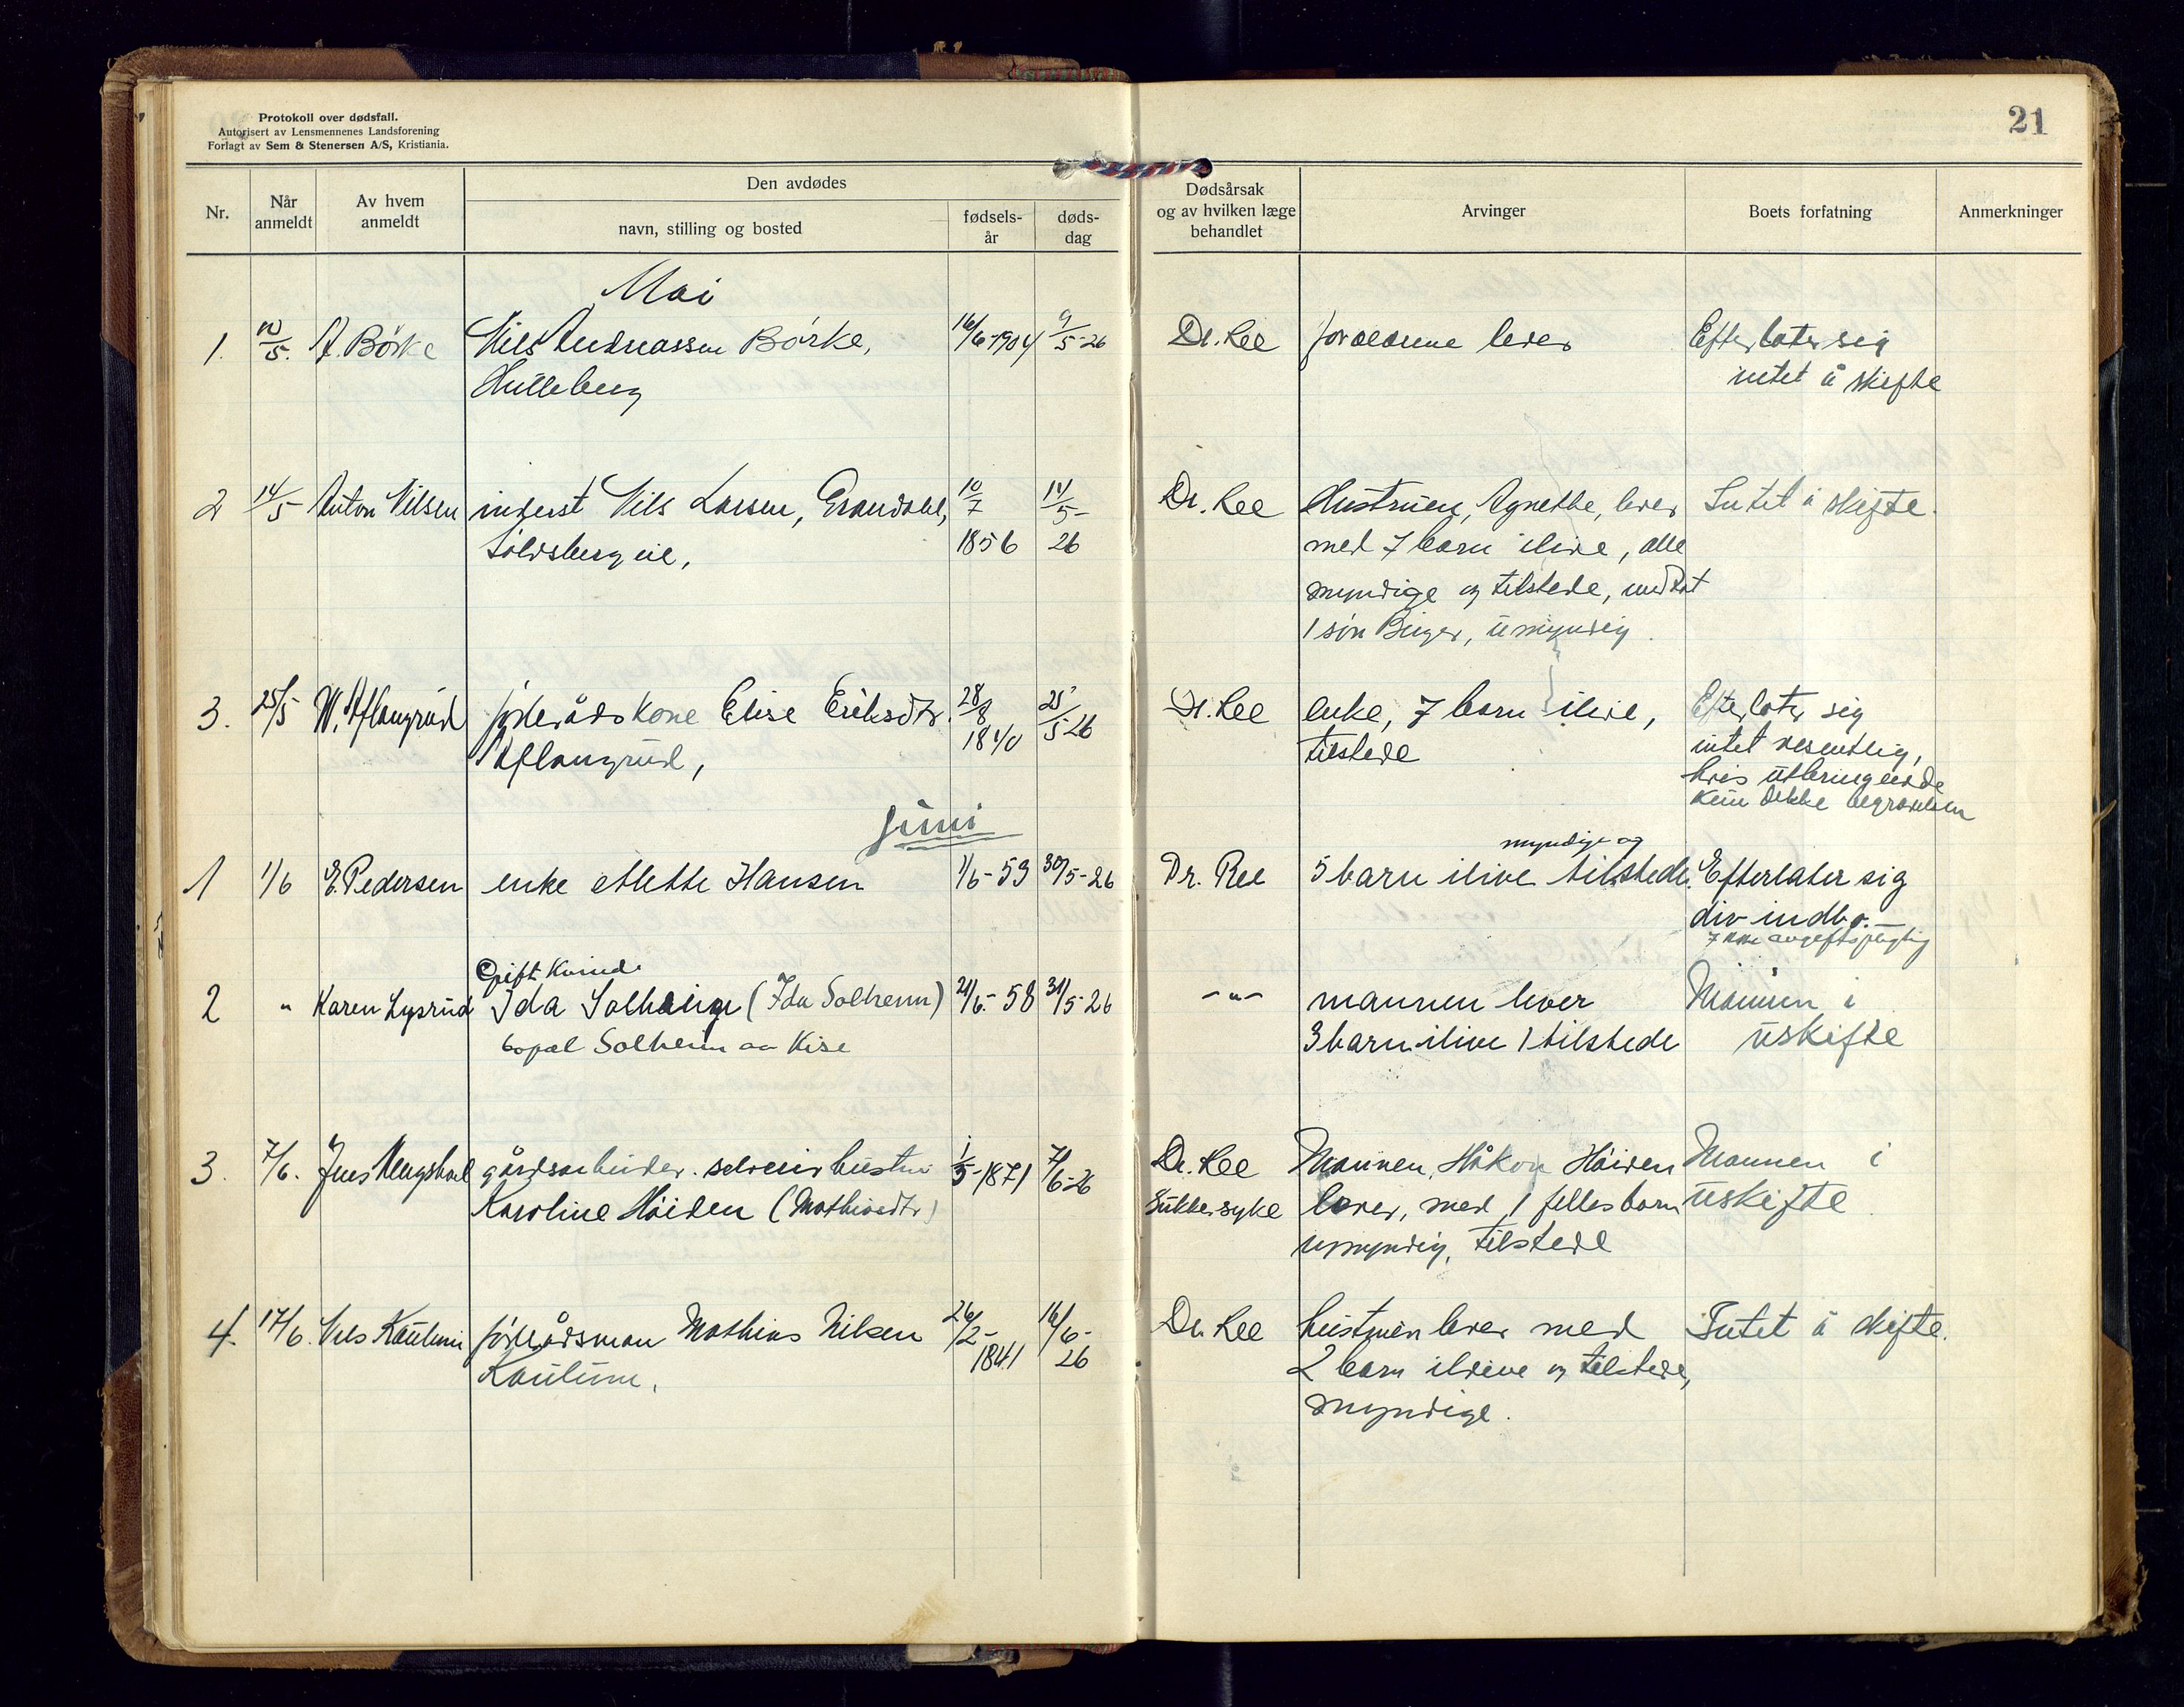 Protokoll over dødsfall.
Autorisert av Lensmennenes Landsforening
Forlagt av Sem & Stenersen A/S, Kristiania.
21
Nr.
Når anmeldt
Av hvem anmeldt
Den avdødes
navn, stilling og bosted
fødsels-år
døds-dag
Dødsårsak og av hvilken læge behandlet
Arvinger
Boets forfatning
Anmerkninger
Mai
1. 10/5. A. Børke Nils Andreassen Børke, 16/6-1904 9/5-26 Dr. Ree forældrene lever Efterlater sig
Hulleberg intet å skifte
2 14/5 Anton Nilsen inderst Nils Larsen, Grandahl, 10/7 14/5- Dr. Ree Hustruen, Agnethe, lever Intet å skifte.
1856 26 med 7 barn ilive, alle
myndige og tilstede, undtat
1 søn Birger, umyndig.
3. 25/5 W. Aflangrud føderådskone Elise Eriksdtr. 28/8 25/5 26 Dr. Ree enke, 7 barn ilive, Efterlater sig
Aflangrud, 1840 tilstede intet vesentlig,
hvis utbringende
kun dekke begravelsen
Juni
myndige og
1 1/6 E. Pedersen enke Mette Hansen 1/6-59 30/5-26 Dr. Ree 5 barn ilive tilstede. Efterlater sig
div indbo.-
Ikke avgiftspligtig
Gift Kvinde
2 " Karen Lysrud Ida Solhaug (Ida Solheim) 21/6-58 31/5-26 -"- mannen lever Mannen i
bopæl Solheim av Kise 3 barn ilive 1 tilstede uskifte
3. 7/6. Jens Mengshoel gårdsarbeider. selveierhustru 1/5-1871 7/6-26 Dr. Ree Mannen, Håkon Høiden Mannen i
Karoline Høiden (Mathisdtr) Sukkersyke lever, med 1 felles barn uskifte.
umyndig, tilstede
4. 17/6. Nils Kaulum føderådsman Mathias Nilsen 26/2- 16/6- Dr. Ree hustruen lever med Intet å skifte.
Kaulum, 1841 26 2 barn ilive og tilstede,
myndige.